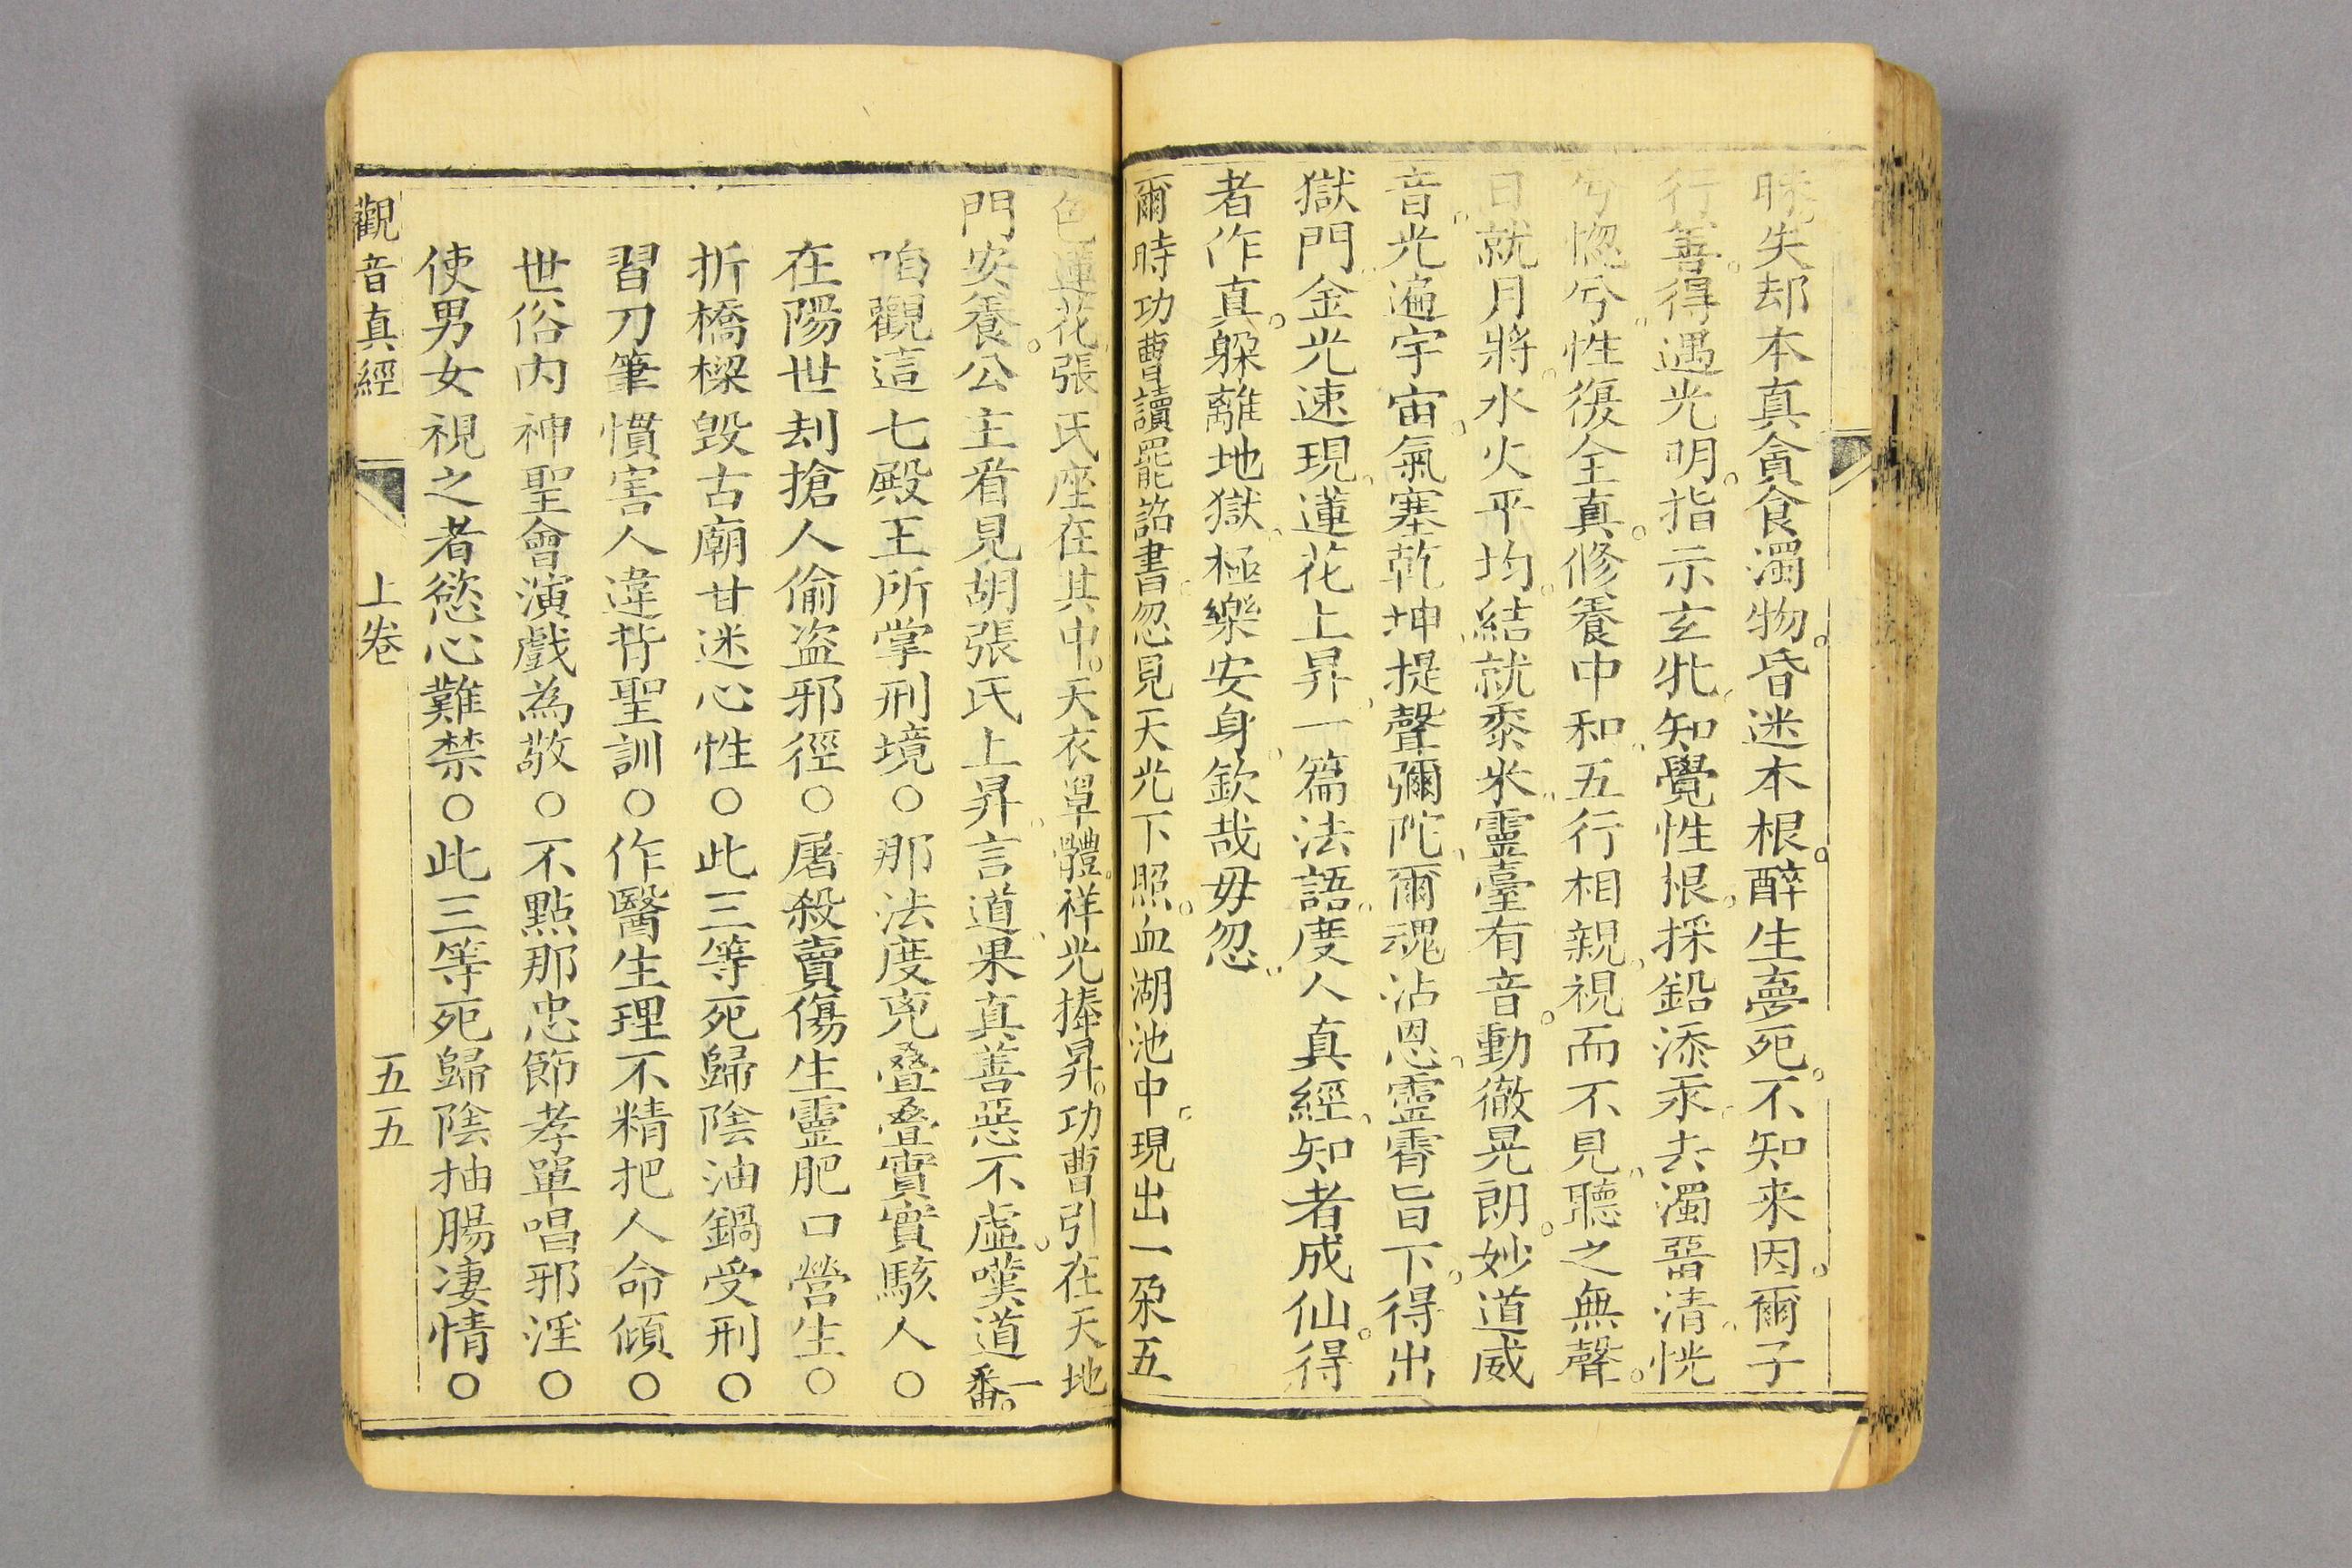 昧。失却本真貪食濁物。昏迷本根。醉生夢死。不知来因。爾子
行善。得遇光明。指示玄牝。知覺性根。採鉛添汞。去濁畱清。恍
兮惚兮。性復全真。修養中和。五行相親。視而不見。聽之無聲。
日就月將。水火平均。結就黍米。靈臺有音。動徹晃朗。妙道威
音。光遍宇宙。氣塞乾坤。提聲彌陀。爾魂沾恩。靈霄旨下。得出
獄門。金光速現。蓮花上昇。一篇法語。度人真經。知者成仙。得
者作真。躱離地獄。極樂安身。欽哉毋忽。
爾時功曹讀罷詔書。忽見天光下照。血湖池中。現出一朶五
色蓮花。張氏座在其中。天衣罩體。祥光捧昇。功曹引在天地
門安養。公主看見胡張氏上昇。言道果真善惡不虛。嘆道一番。
咱觀這七殿王所掌刑境○那法度兇叠叠實實駭人○
在陽世刦搶人偷盜邪徑○屠殺賣傷生靈肥口營生○
折橋樑毀古廟甘迷心性○此三等死歸陰油鍋受刑○
習刀筆慣害人違背聖訓○作醫生理不精把人命傾○
世俗内神聖會演戲為敬○不點那忠節孝單唱邪淫○
使男女視之者慾心難禁○此三等死歸陰抽腸淒情○
觀音真經 上卷 五五